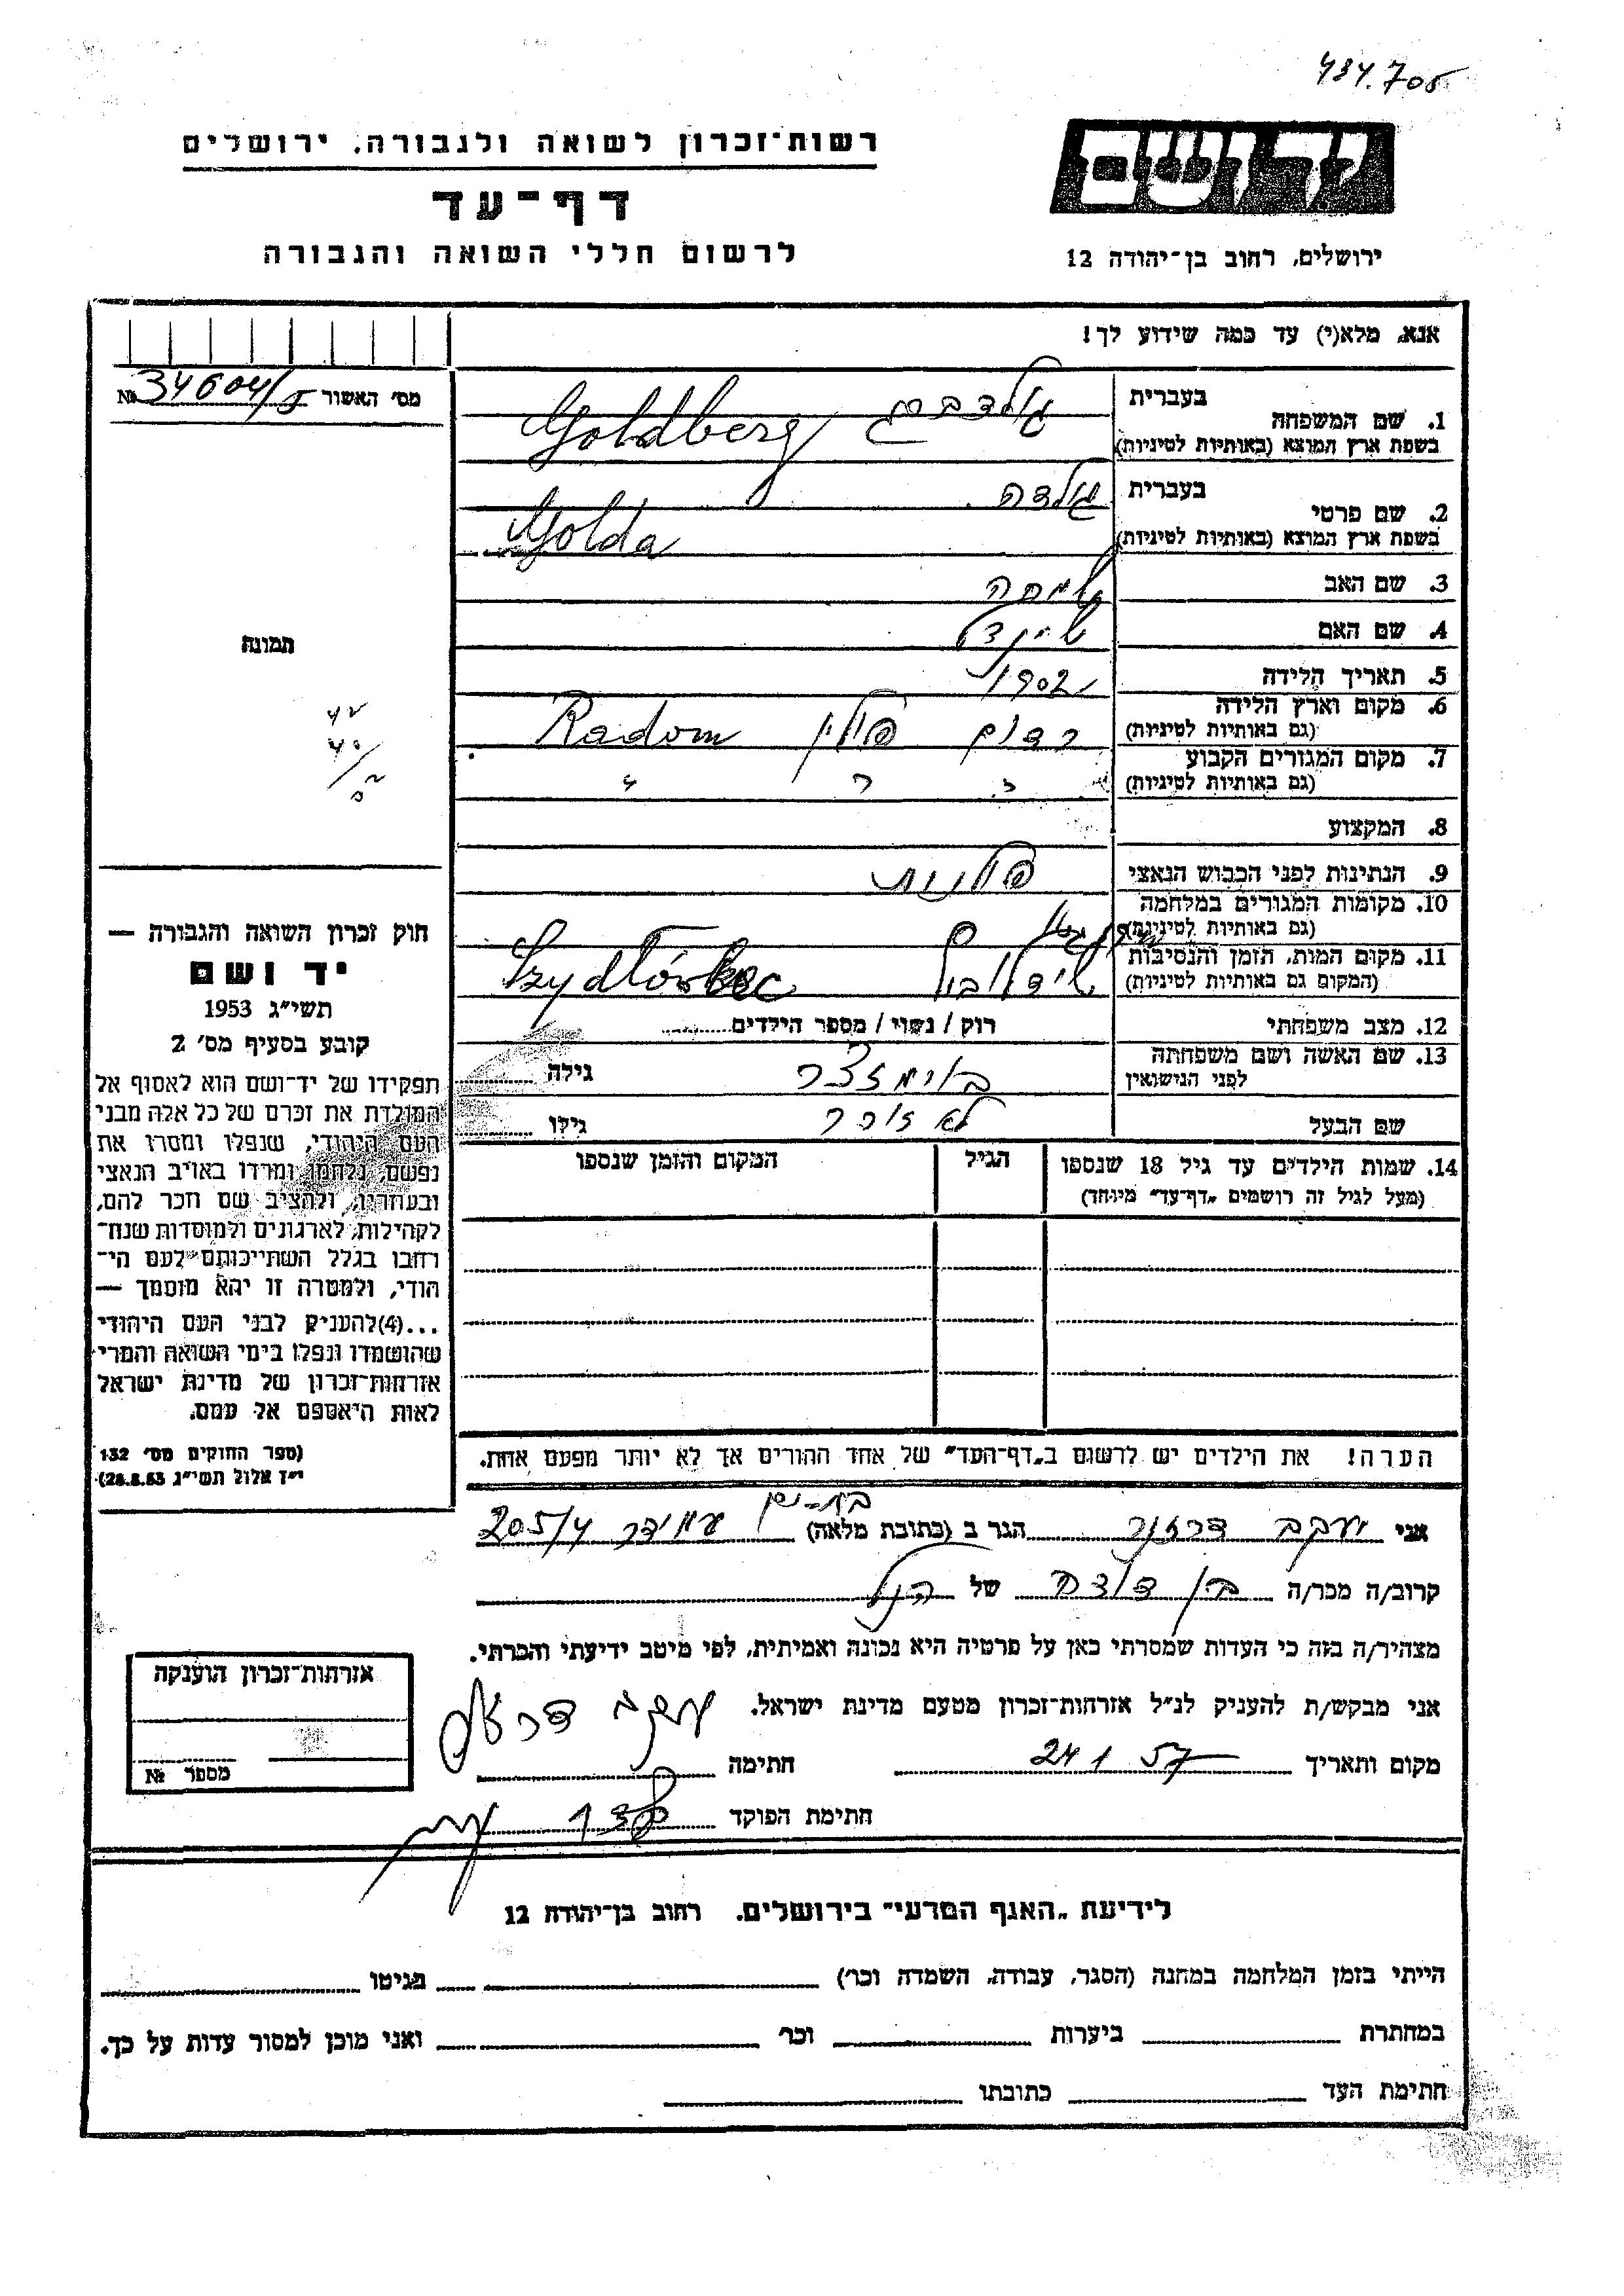 434.705
יד ושם
רשות־זכרון לשואה ולגבורה, ירושלים
דף־עד
לרשום חללי השואה והגבורה
ירושלים, רחוב בן־יהודה 12
אנא, מלא(י) עד כמה שידוע לך!
מס׳ האשור 34604/5 №
1. שם המשפחה
בעברית גולדברג
בשפת ארץ המוצא (באותיות לטיניות) Goldberg
2. שם פרטי
בעברית גולדה
בשפת ארץ המוצא (באותיות לטיניות) Golda
3. שם האב שמחה
4. שם האם שיינדל
5. תאריך הלידה 1902
6. מקום וארץ הלידה
(גם באותיות לטיניות) רדום פולין Radom
7. מקום המגורים הקבוע
(גם באותיות לטיניות) " " "
8. המקצוע
9. הנתינות לפני הכבוש הנאצי פולנית
10. מקומות המגורים במלחמה
(גם באותיות לטיניות)
11. מקום המות, הזמן והנסיבות
(המקום גם באותיות לטיניות) Szydłówkec
12. מצב משפחתי רוק / נשוי / מספר הילדים
13. שם האשה ושם משפחתה
לפני הנישואין גילה
שם הבעל גילו
14. שמות הילדים עד גיל 18 שנספו
(מעל לגיל זה רושמים „דף־עד״ מיוחד)
הגיל
המקום והזמן שנספו
תמונה
חוק זכרון השואה והגבורה —
יד ושם
תשי״ג 1953
קובע בסעיף מס׳ 2
תפקידו של יד־ושם הוא לאסוף אל
המולדת את זכרם של כל אלה מבני
העם היהודי, שנפלו ומסרו את
נפשם, נלחמו ומרדו באויב הנאצי
ובעוזריו, ולהציב שם וזכר להם,
לקהילות, לארגונים ולמוסדות שנח־
רבו בגלל השתייכותם לעם הי־
הודי, ולמטרה זו יהא מוסמך —
...(4)להעניק לבני העם היהודי
שהושמדו ונפלו בימי השואה והמרי
אזרחות־זכרון של מדינת ישראל
לאות היאספם אל עמם.
(ספר החוקים מס׳ 132
י״ז אלול תשי״ג 28.8.53)
הערה! את הילדים יש לרשום ב„דף־העד״ של אחד ההורים אך לא יותר מפעם אחת.
אני יעקב הגר ב (כתובת מלאה) בת-ים עמידר 205/4
קרוב/ה מכר/ה בן דודה של הנ״ל
מצהיר/ה בזה כי העדות שמסרתי כאן על פרטיה היא נכונה ואמיתית, לפי מיטב ידיעתי והכרתי.
אני מבקש/ת להעניק לנ״ל אזרחות־זכרון מטעם מדינת ישראל.
מקום ותאריך 24 1 57 חתימה יעקב
חתימת הפוקד
אזרחות־זכרון הוענקה
מספר №
לידיעת „האגף המדעי״ בירושלים, רחוב בן־יהודה 12
הייתי בזמן המלחמה במחנה (הסגר, עבודה, השמדה וכו׳) בגיטו
במחתרת ביערות וכו׳ ואני מוכן למסור עדות על כך.
חתימת העד כתובתו